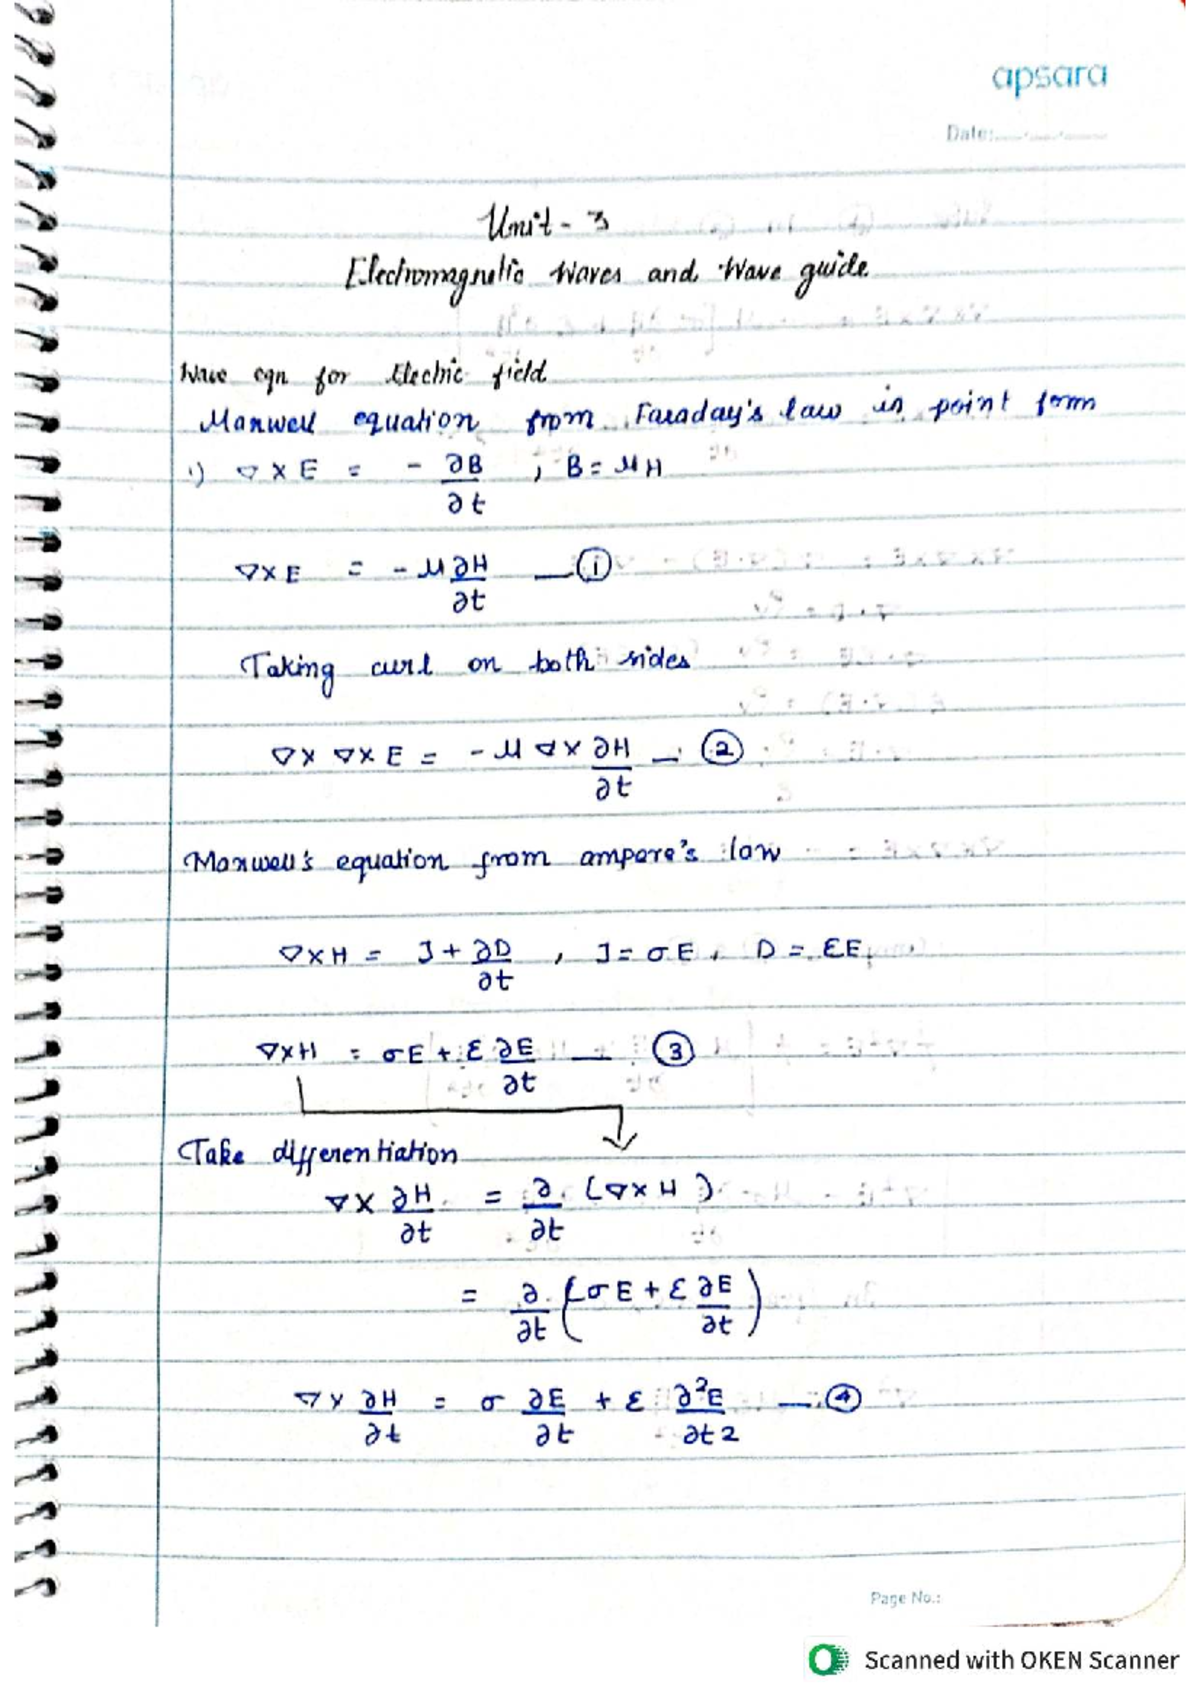 apsara
Date:
Unit - 3
Electromagnetic Waves and Wave guide
Wave eqn for Electric field
Maxwell equation from Faraday's law in point form
1) ∇ × E = - ∂B/∂t , B = μH
∇×E = - μ ∂H/∂t — ①
Taking curl on both sides
∇× ∇×E = - μ ∇× ∂H/∂t — ②
Maxwell's equation from ampere's law
∇×H = J + ∂D/∂t , J = σE , D = εE
∇×H = σE + ε ∂E/∂t — ③
Take differentiation
∇× ∂H/∂t = ∂/∂t (∇×H)
= ∂/∂t (σE + ε ∂E/∂t)
∇× ∂H/∂t = σ ∂E/∂t + ε ∂²E/∂t2 — ④
Page No.:
Scanned with OKEN Scanner